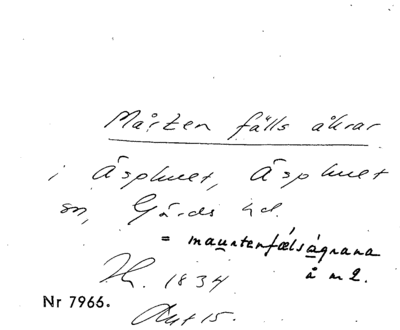 Mårten fälls åkrar
i Äsphult, Äsphult
sn, Gärds hd.
= maurtenfælságrana
å m2.
Hz. 1834
Nr 7966.
Akt 15.